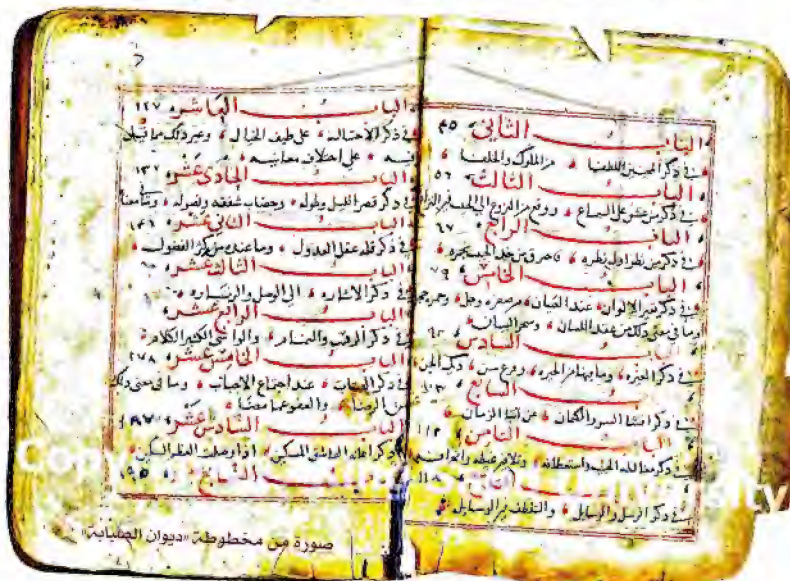 الباب الثاني ٤٥
في ذكر المحبين الظرفا من الملوك والخلفا
الباب الثالث ٥٦
في ذكر من عشق على السماع ووقع من النزوع الى الحبيب في النزاع
الباب الرابع ٦٧
في ذكر من نظر اول نظره فاحترق من خد الحبيب بجمره
الباب الخامس ٧٩
في ذكر تغير الالوان عند العيان من صفره وجل وحمره خجل
وما في معنى ذلك من عقد اللسان وسحر البيان
الباب السادس ٩٢
في ذكر الغيره وما فيها من الحيره وقرع سن ديك الجن
السابع ١٠٣
في ذكر افشا السر والكتمان عند ابنا الزمان
الباب الثامن ١١٢
في ذكر مغالطه الحبيب واستعطافه وتلافي غيظه وانحرافه
التاسع ١١٨
في ذكر الرسل والرسايل والتلطف في الوسايل
الباب العاشر ١٢٧
في ذكر الاحتيال على طيف الخيال وغير ذلك مما قيل
فيه على اختلاف معانيه
الباب الحادي عشر ١٣٢
في ذكر قصر الليل وطوله وخضاب شفقه ونصوله وما في معنا
الباب الثاني عشر ١٤٦
في ذكر قله عقل العدول وما عنده من كثرة الفضول
الباب الثالث عشر
في ذكر الاشاره الى الوصل والزياره
الباب الرابع عشر
في ذكر الرقيب والنمام والواشي الكثير الكلام
الباب الخامس عشر ١٧٨
في ذكر العتاب عند اجتماع الاحباب وما في معنى ذلك
من الرضا والعفو عما مضا
الباب السادس عشر ١٨٧
في ذكر اعانه العاشق المسكين اذا وصلت العظم السكين
السابع ١٩٥
صورة من مخطوطة «ديوان الصبابة»